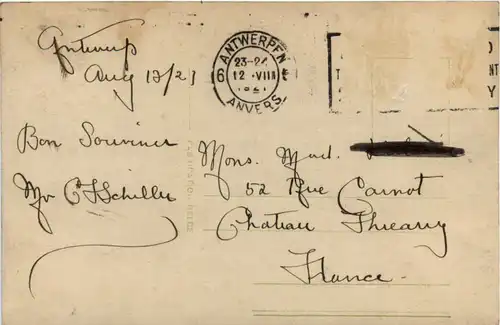 Antwerp
Aug 12/21
Bon Souvinir
Mr C Schiller
ANTWERPEN
6
23-24
12 VIII
1921
ANVERS
Mons. Mad.
52 Rue Carnot
Chateau Thierry
France